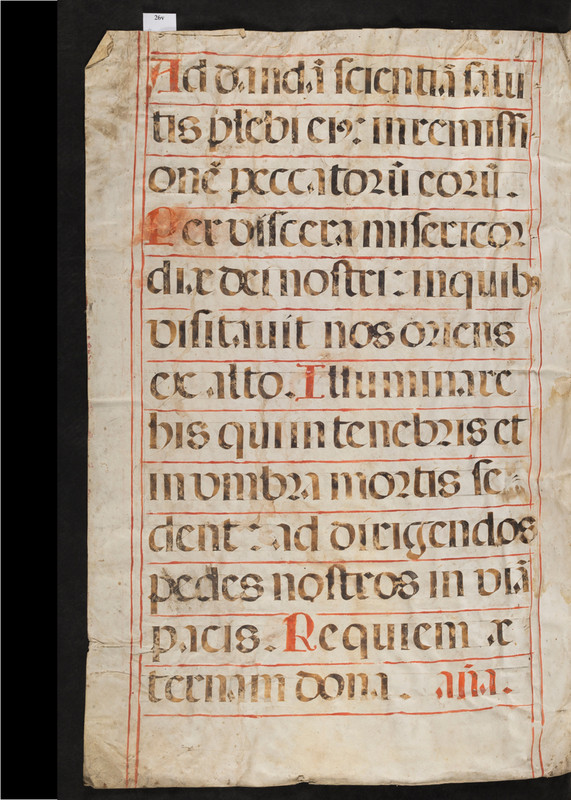 26v
Ad dandā scientiā salu
tis plebi eiꝰ: in remissi
onē peccatorū eorū.
Per viscera misericor
diæ dei nostri: in quibꝰ
visitavit nos oriens
ex alto. Illuminare
his qui in tenebris et
in vmbra mortis se
dent: ad dirigendos
pedes nostros in viā
pacis. Requiem æ
ternam dona. añа.